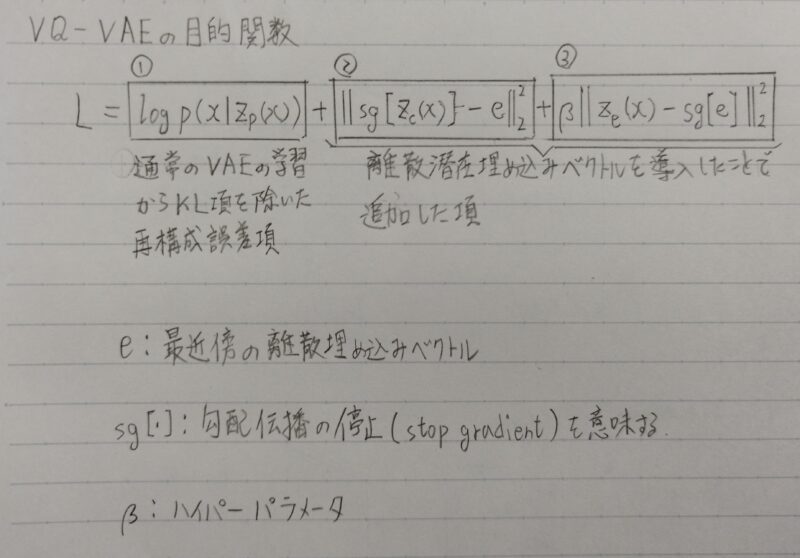 VQ-VAEの目的関数
① ② ③
L = log p(x|z_p(x)) + ‖sg[z_e(x)] - e‖₂² + β‖z_e(x) - sg[e]‖₂²
通常のVAEの学習
からKL項を除いた
再構成誤差項
離散潜在埋め込みベクトルを導入したことで
追加した項
e:最近傍の離散埋め込みベクトル
sg[·]:勾配伝播の停止(stop gradient)を意味する.
β:ハイパーパラメータ